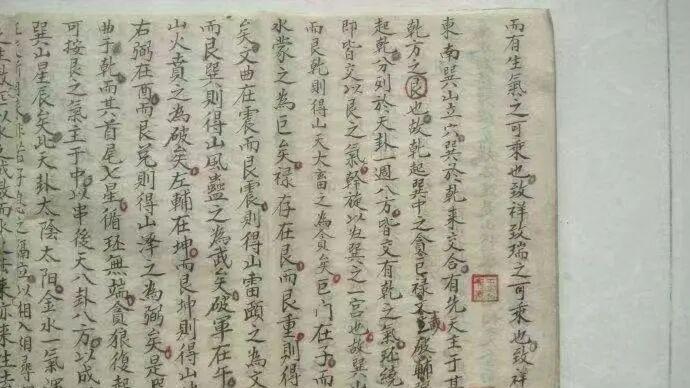 而有生氣之可乘也致祥致瑞之可乘也致祥
東南巽山立穴巽於乾來交合有先天主于其
乾方之艮也故乾起巽中之貪巨祿文武廉破輔
起乾分列於天卦一週八方皆交有乾之氣
即皆交以艮之氣斡旋以为巽之一宮也故巽山
而艮乾則得山天大畜之為貪矣巨门在子而
水蒙之為巨矣禄存在艮而艮重則得
矣文曲在震而艮震則得山雷頤之為文
而艮巽則得山風蠱之為武矣破軍在午
山火賁之為破矣左輔在坤而艮坤則得山地
右弼在酉而艮兌則得山泽之為弼矣是
曲于乾而其首尾七星循环無端貪狼復起
可按艮之氣主于中以串後天八卦八方以成
巽山星辰矣此天卦太陰太陽金水一氣
之隔立以相入相尋